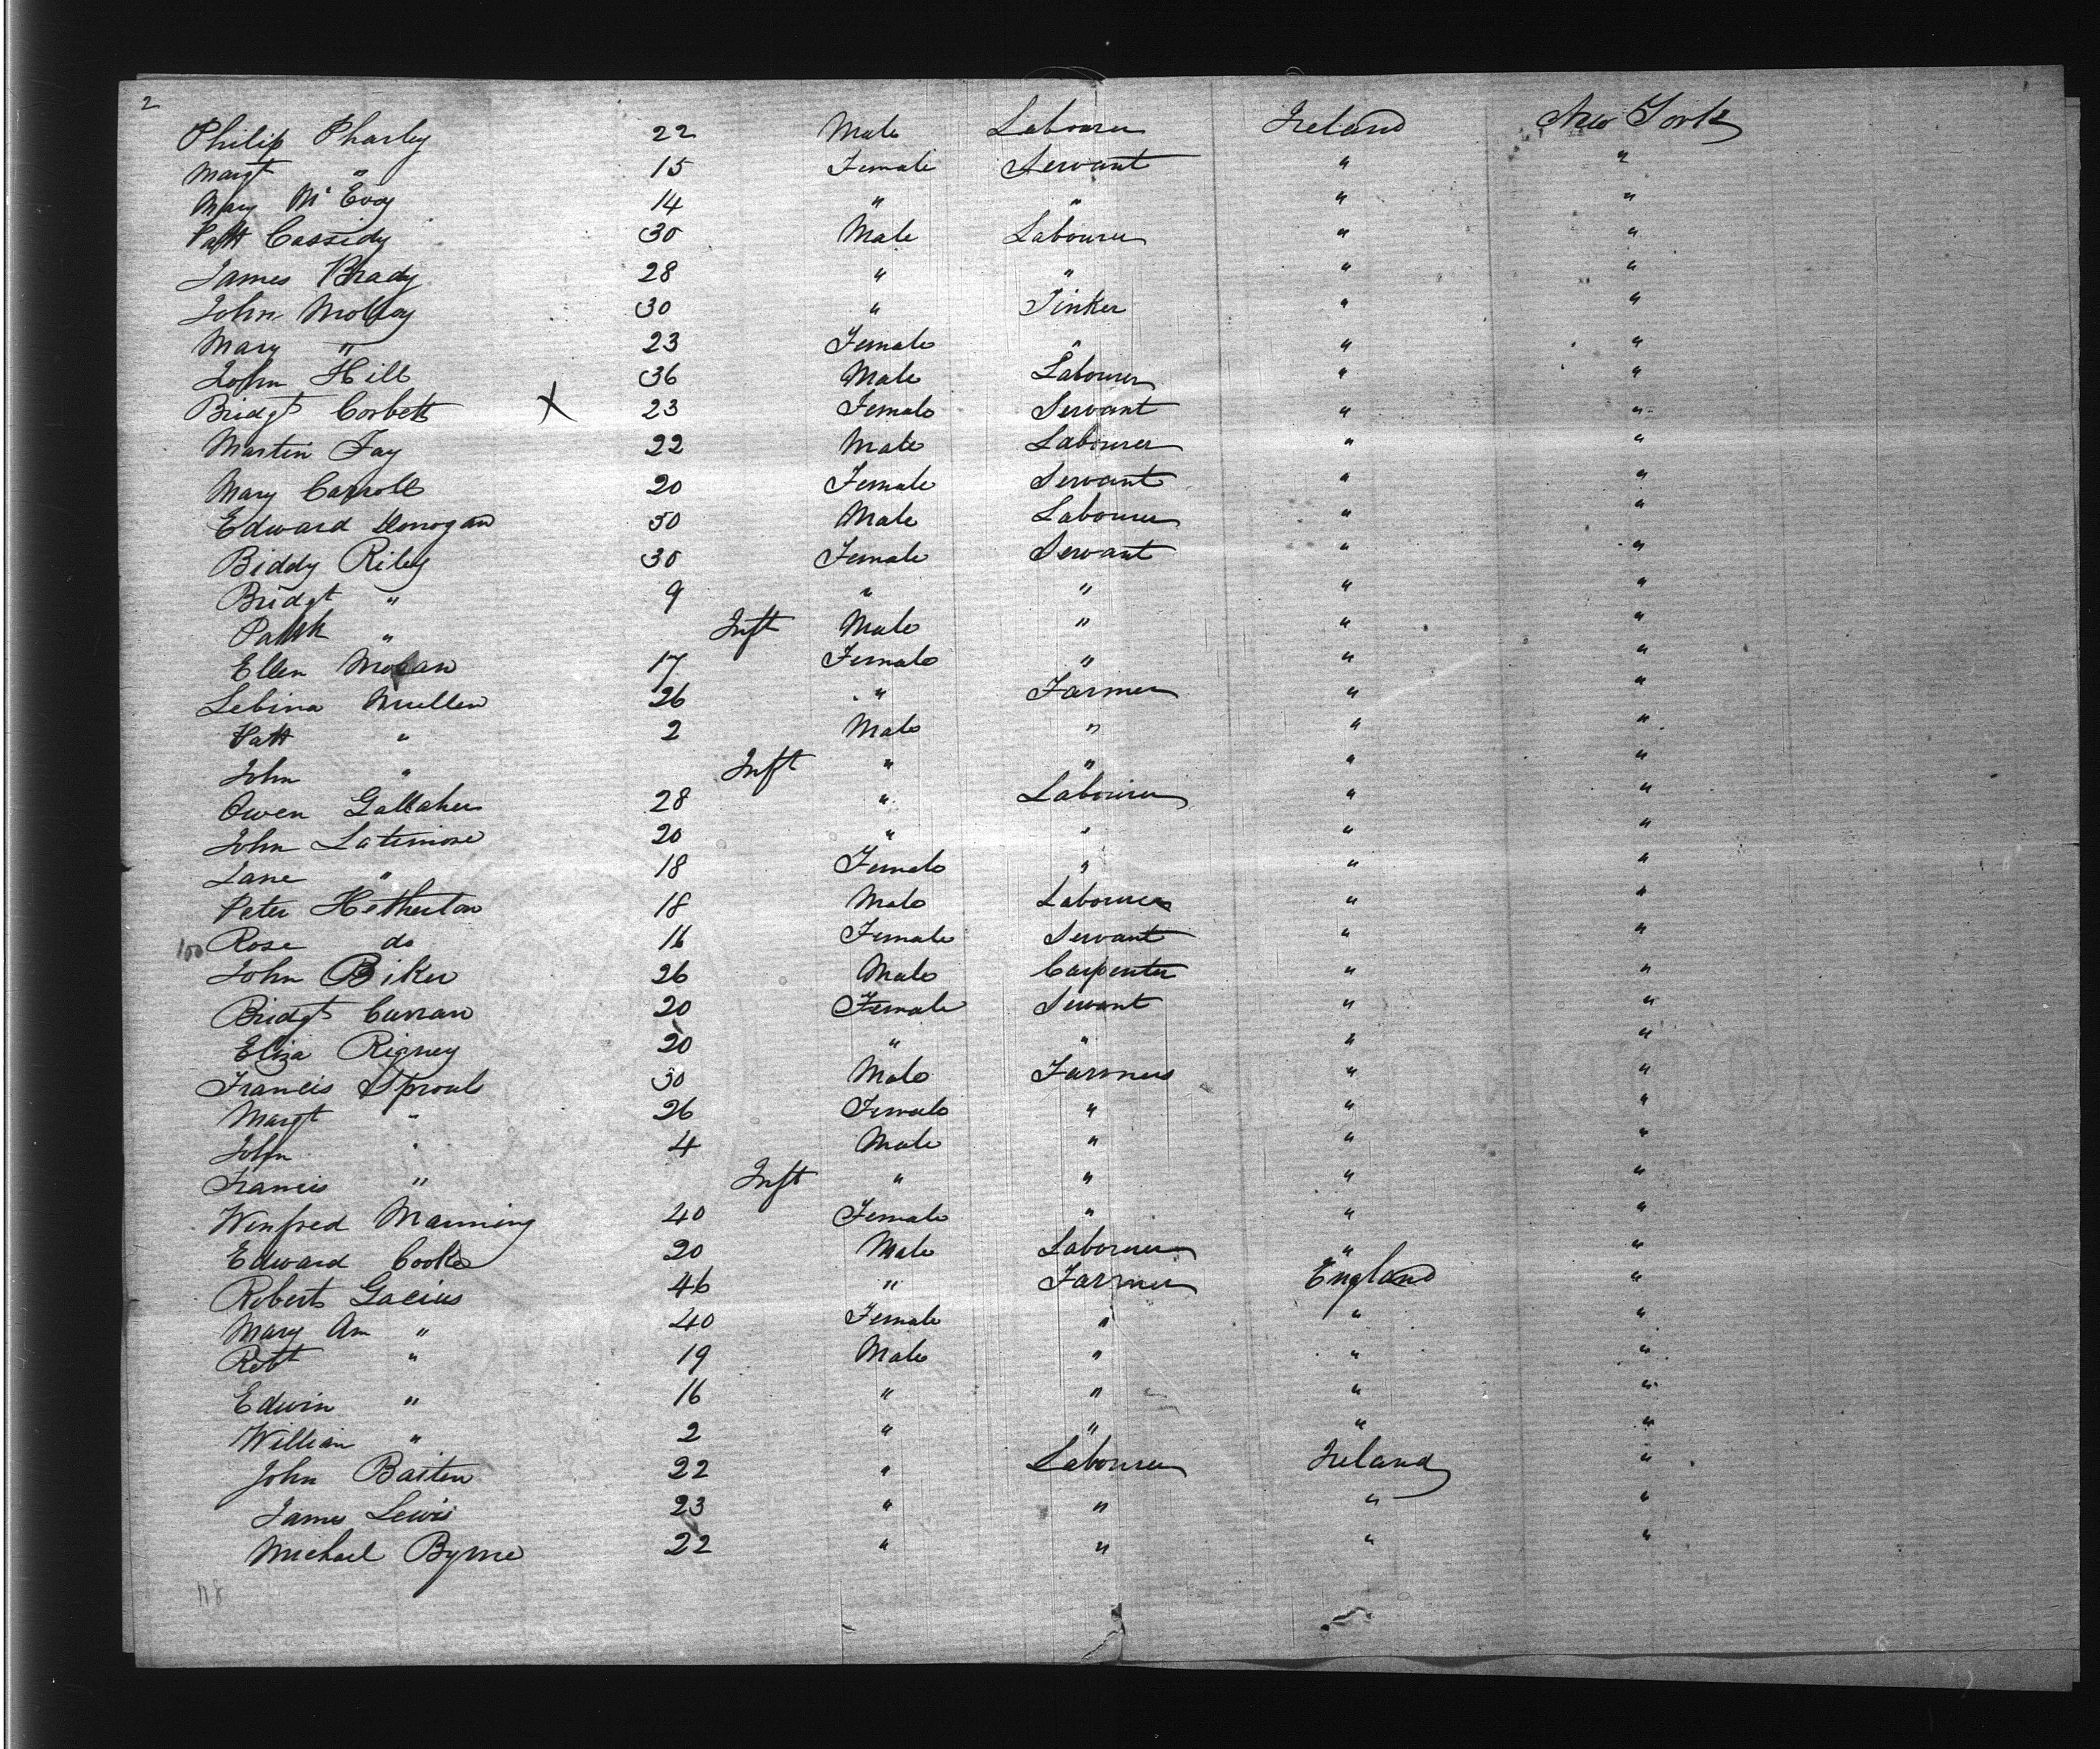 2
Philip Pharley 22 Male Labourer Ireland New York
Margt " 15 Female Servant " "
Mary McEvoy 14 " " " "
Patt Cassidy 30 Male Labourer " "
James Brady 28 " " " "
John Molloy 30 " Tinker " "
Mary " 23 Female " " "
John Hill 36 Male Labourer " "
Bridgt Corbett X 23 Female Servant " "
Martin Fay 22 Male Labourer " "
Mary Carroll 20 Female Servant " "
Edward Donogan 50 Male Labourer " "
Biddy Riley 30 Female Servant " "
Bridgt " 9 " " " "
Patrk " Inft Male " " "
Ellen Moran 17 Female " " "
Lebina Mullen 26 " Farmer " "
Patt " 2 Male " " "
John " Inft " " " "
Owen Gallaher 28 " Labourer " "
John Latimore 20 " " " "
Jane " 18 Female " " "
Peter Hetherton 18 Male Labourer " "
100 Rose do 16 Female Servant " "
John Biker 26 Male Carpenter " "
Bridgt Curran 20 Female Servant " "
Eliza Rigney 20 " " " "
Francis Sproul 30 Male Farmer " "
Margt " 26 Female " " "
John " 4 Male " " "
Francis " Inft " " " "
Winfred Manning 40 Female " " "
Edward Cooke 20 Male Labourer " "
Robert Gacius 46 " Farmer England "
Mary Ann " 40 Female " " "
Robt " 19 Male " " "
Edwin " 16 " " " "
William " 2 " " " "
John Baiten 22 " Labourer Ireland "
James Lewis 23 " " " "
Michael Byrne 22 " " " "
118